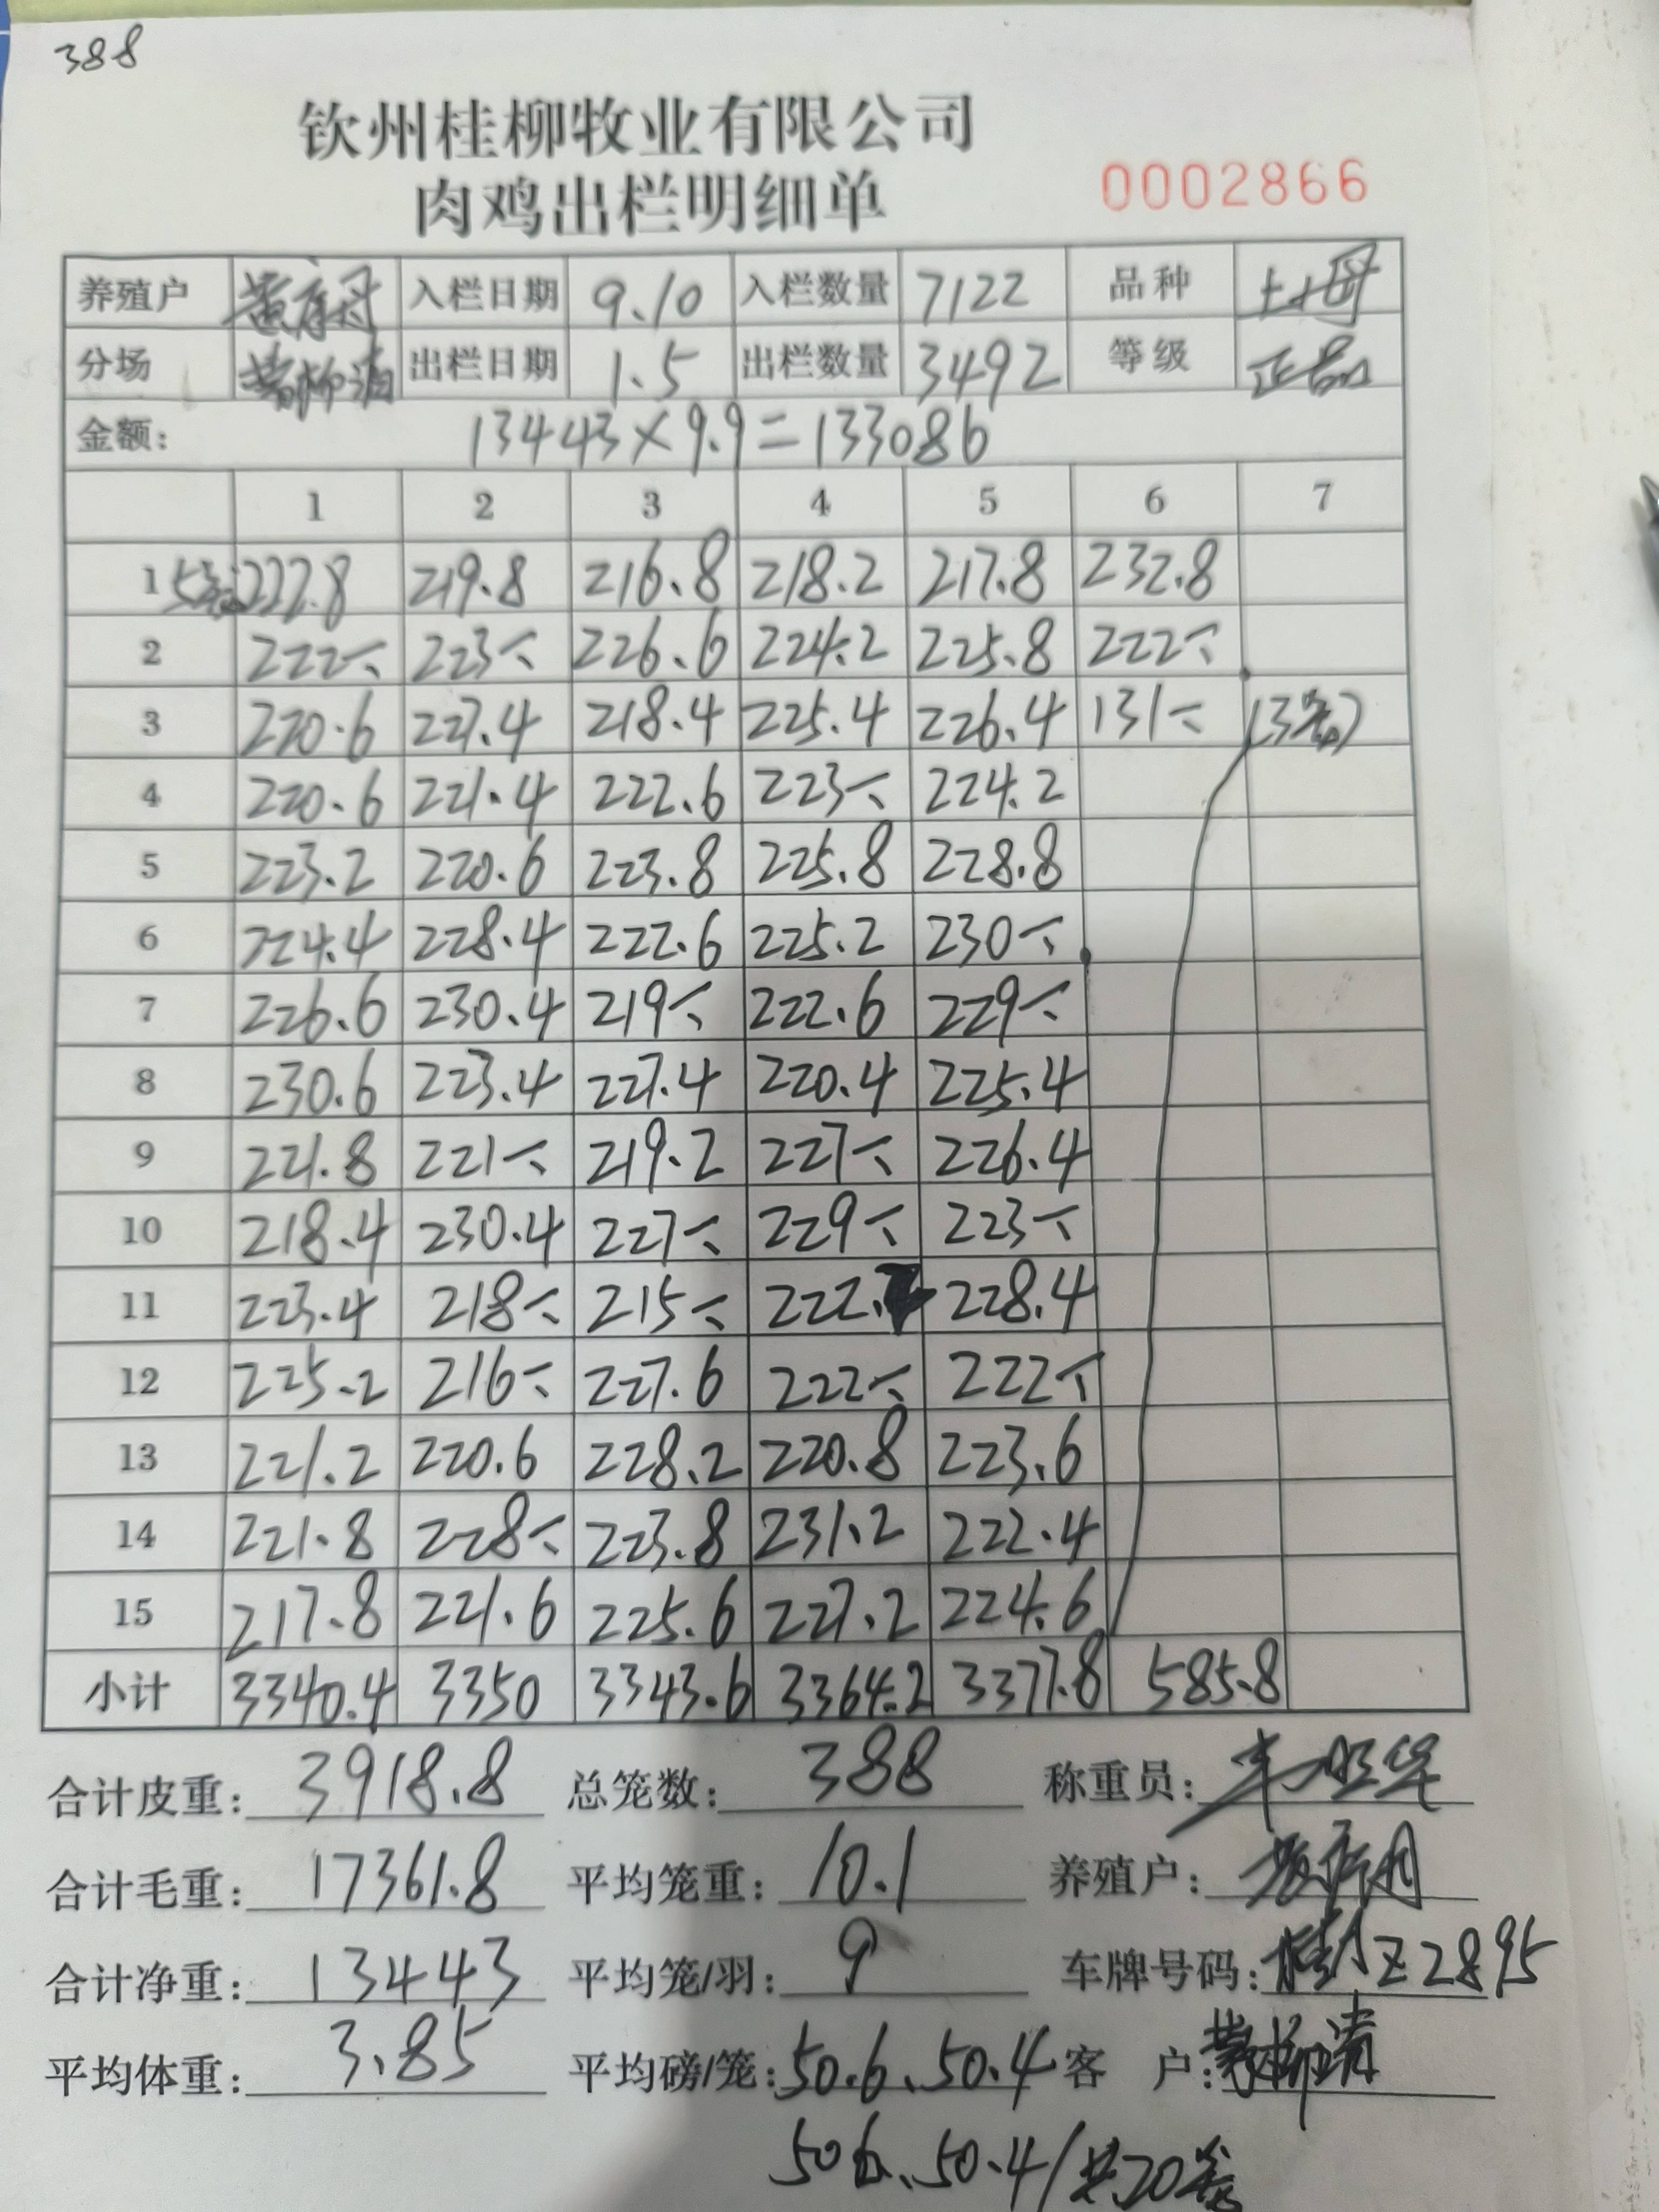 388
钦州桂柳牧业有限公司
肉鸡出栏明细单
0002866
养殖户 入栏日期 9.10 入栏数量 7122 品种 土2母
分场 出栏日期 1.5 出栏数量 3492 等级 正品
金额: 13443×9.9=133086
1 2 3 4 5 6 7
1 5笼 222.8 219.8 216.8 218.2 217.8 232.8
2 222 223 226.6 224.2 225.8 222
3 220.6 227.4 218.4 225.4 226.4 131 (3笼)
4 220.6 221.4 222.6 223 224.2
5 223.2 220.6 223.8 225.8 228.8
6 224.4 228.4 222.6 225.2 230
7 226.6 230.4 219 222.6 229
8 230.6 223.4 227.4 220.4 225.4
9 221.8 221 219.2 227 226.4
10 218.4 230.4 227 229 223
11 223.4 218 215 222. 228.4
12 225.2 216 227.6 222 222
13 221.2 220.6 228.2 220.8 223.6
14 221.8 228 223.8 231.2 222.4
15 217.8 221.6 225.6 227.2 224.6
小计 3340.4 3350 3343.6 3364.2 3377.8 585.8
合计皮重: 3918.8 总笼数: 388 称重员:
合计毛重: 17361.8 平均笼重: 10.1 养殖户:
合计净重: 13443 平均笼/羽: 9 车牌号码: 桂 Z2895
平均体重: 3.85 平均磅/笼: 50.6、50.4 客 户:
50.6、50.4/共20笼